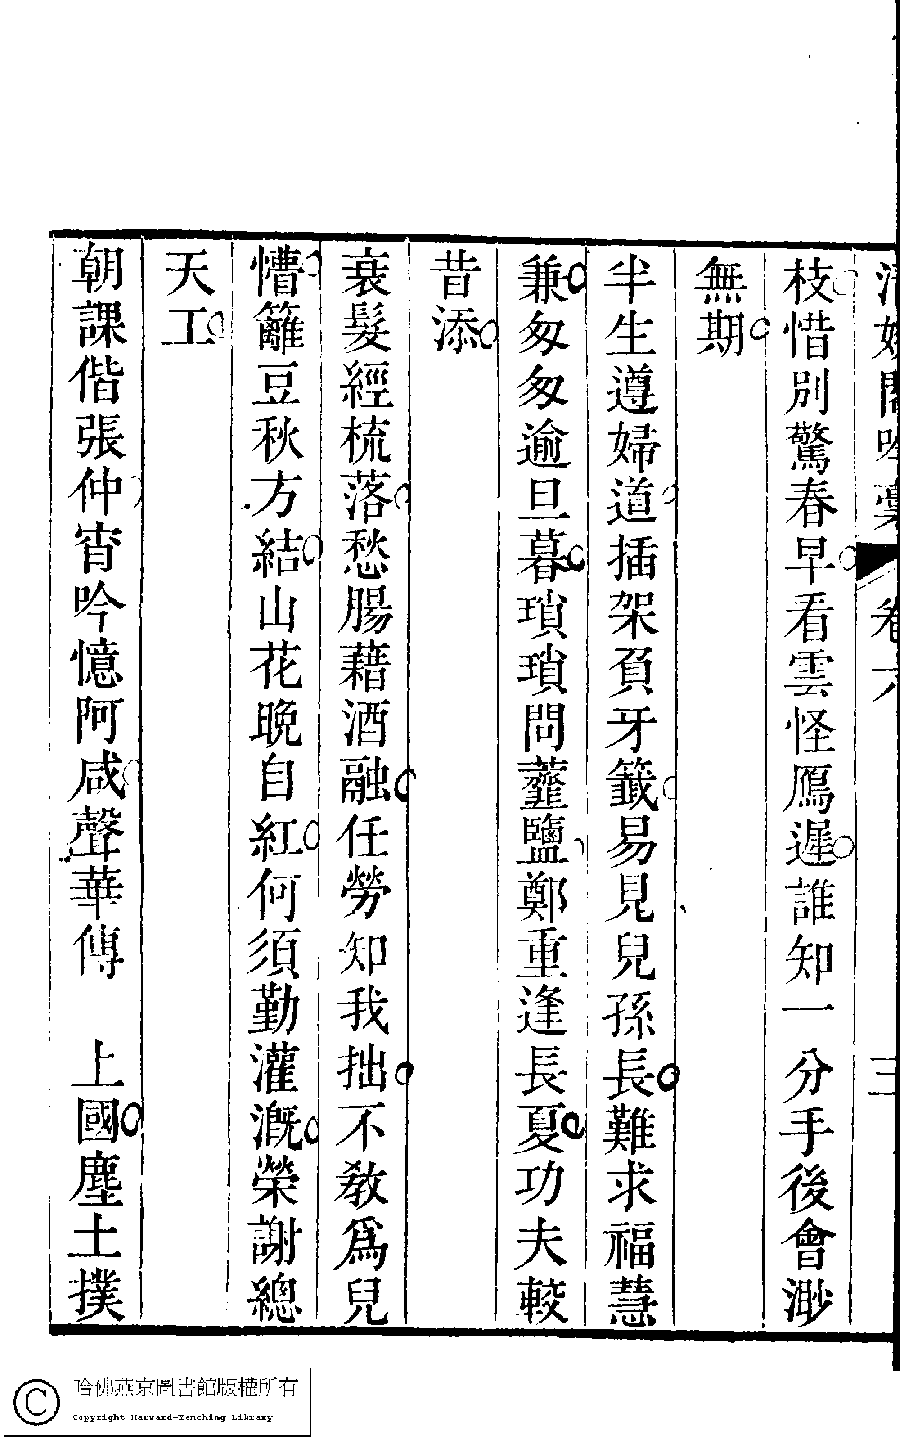 清娛閣吟藁 卷六 三
枝惜別驚春早看雲怪鴈遲誰知一分手後會渺
無期
半生遵婦道插架負牙籤易見兒孫長難求福慧
兼匆匆逾旦暮瑣瑣問虀鹽鄭重逢長夏功夫較
昔添
衰髮經梳落愁腸藉酒融任勞知我拙不敎爲兒
慒籬豆秋方結山花晚自紅何須勤灌漑榮謝總
天工
朝課偕張仲宵吟憶阿咸聲華傳 上國塵土撲
哈佛燕京圖書館版權所有
Copyright Harvard-Yenching Library